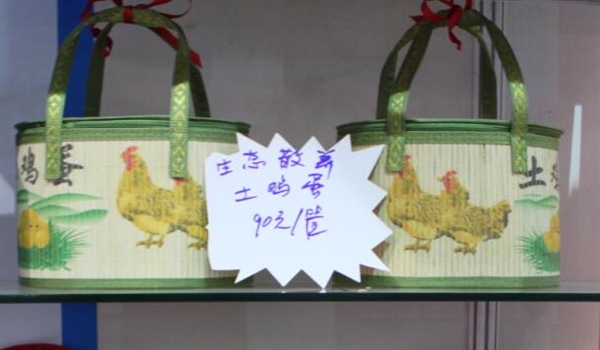 鸡蛋
生态散养
土鸡蛋
90元/
土